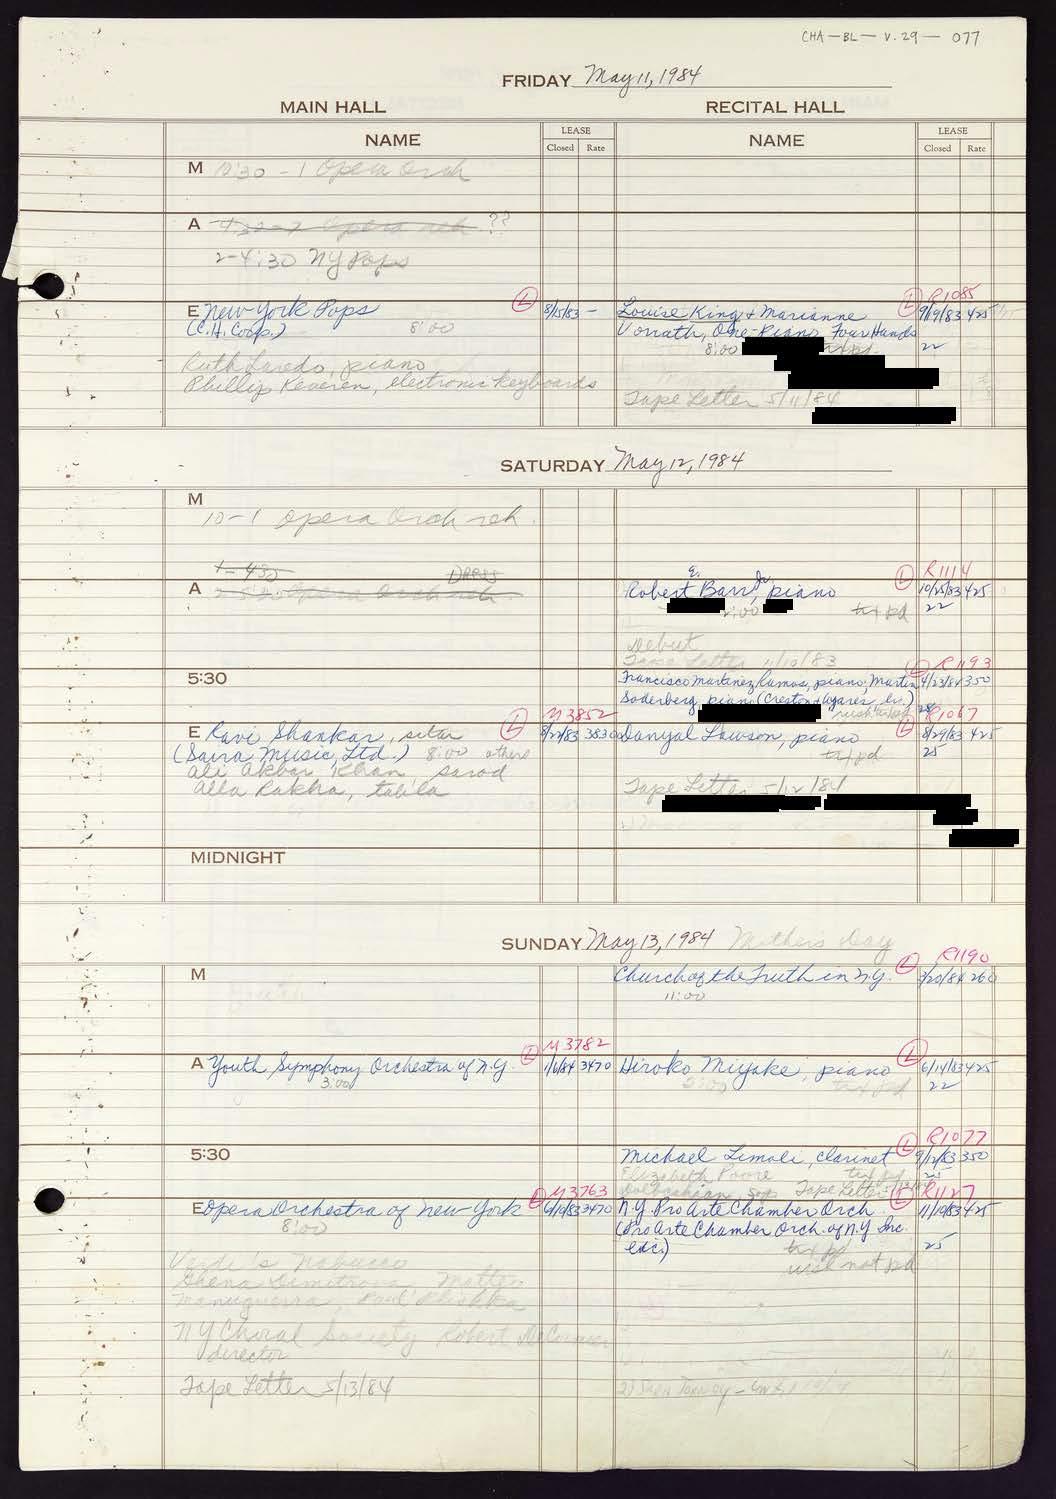 CHA-BL-V.29-077
FRIDAY May 11, 1984
MAIN HALL
RECITAL HALL
NAME
LEASE
Closed Rate
NAME
LEASE
Closed Rate
M 10:30-1 Opera Orch
A 4:30-7 Opera reh ??
2-4:30 NY Pops
E New York Pops (L) 8/15/83 -
(C.H. Corp.) 8:00
Ruth Laredo, piano
Phillip Keveren, electronic keyboards
(L) R1085
Louise King + Marianne 9/19/83 425
Vorrath, One-Piano, Four Hands 22
8:00 txt pd.
Tape Letter 5/11/84
SATURDAY May 12, 1984
M
10-1 Opera Orch reh.
1-4:30 DRESS
A 2-5:30 Opera Orch reh.
(L) R1114
Robert E. Barr, Jr., piano 10/25/83 425
2:00 txt pd 22
Debut
Tape Letter 11/10/83
5:30
(L) R1193
Francisco Martinez Ramos, piano; Martin 4/23/84 350
Soderberg, piano
M3852
E Ravi Shankar, sitar (L) 8/22/83 3830
(Saira Music, Ltd.) 8:00 others
Ali Akbar Khan, sarod
Alla Rakha, tabla
(L) R1067
Danyal Lawson, piano 8/29/83 425
txt pd 25
Tape Letter 5/12/84
MIDNIGHT
SUNDAY May 13, 1984 Mother's Day
M
(L) R1190
Church of the Truth in N.Y. 3/20/84 260
11:00
M3782
A Youth Symphony Orchestra of N.Y. (L) 1/6/84 3470
3:00
(L)
Hiroko Miyake, piano 6/14/83 425
2:00 txt pd 22
5:30
(L) R1077
Michael Limoli, clarinet 9/12/83 350
Elizabeth Poore txt pd 25
Tape Letter
M3763
E Opera Orchestra of New York (L) 6/10/83 3470
8:00
Verdi's Nabucco
Ghena Dimitrova Matteo
Manuguerra, Paul Plishka
NY Choral Society Robert DeCormier
director
Tape Letter 5/13/84
(L) R1127
N.Y. Pro Arte Chamber Orch. 11/10/83 425
(Pro Arte Chamber Orch. of N.Y. Inc.
edc.) txt pd 25
not pd